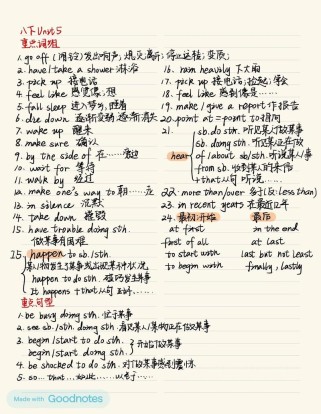 八下 Unit 5
重点词组
1. go off (闹钟)发出响声; 熄灭; 离开; 停止运转; 变质;
2. have/take a shower 淋浴
3. pick up 接电话
4. feel like 感觉像, 想
5. fall sleep 进入梦乡, 睡着
6. die down 逐渐变弱, 逐渐消失
7. wake up 醒来
8. make sure 确认
9. by the side of 在……旁边
10. wait for 等待
11. walk by 经过
12. make one's way to 朝……走
13. in silence 沉默
14. take down 摧毁
15. have trouble doing sth.
做某事有困难
15. happen to sb./sth.
某人/物发生了某事或出现某种状况
happen to do sth. 碰巧发生某事
It happens + that从句 正好……
16. rain heavily 下大雨
17. pick up 接电话; 捡起; 学会
18. feel like 感到像是……
19. make/give a report 作报告
20. point at = point to 指向
21. hear
sb. do sth. 听见某人做某事
sb. doing sth. 听见某人正在做
of/about sb./sth. 听说某人/事
from sb. 收到某人的来信
+ that从句 听说……
22. more than/over 多于 (反: less than)
23. in recent years 在最近几年
24. 最初; 开始 最后
at first in the end
first of all at last
to start with last but not least
to begin with finally, lastly
重点句型
1. be busy doing sth. 忙于某事
2. see sb./sth. doing sth. 看见某人/某物正在做某事
3. begin/start to do sth.
begin/start doing sth. } 开始做某事
4. be shocked to do sth. 对做某事感到震惊
5. so … that … 如此…… 以至于……
Made with Goodnotes